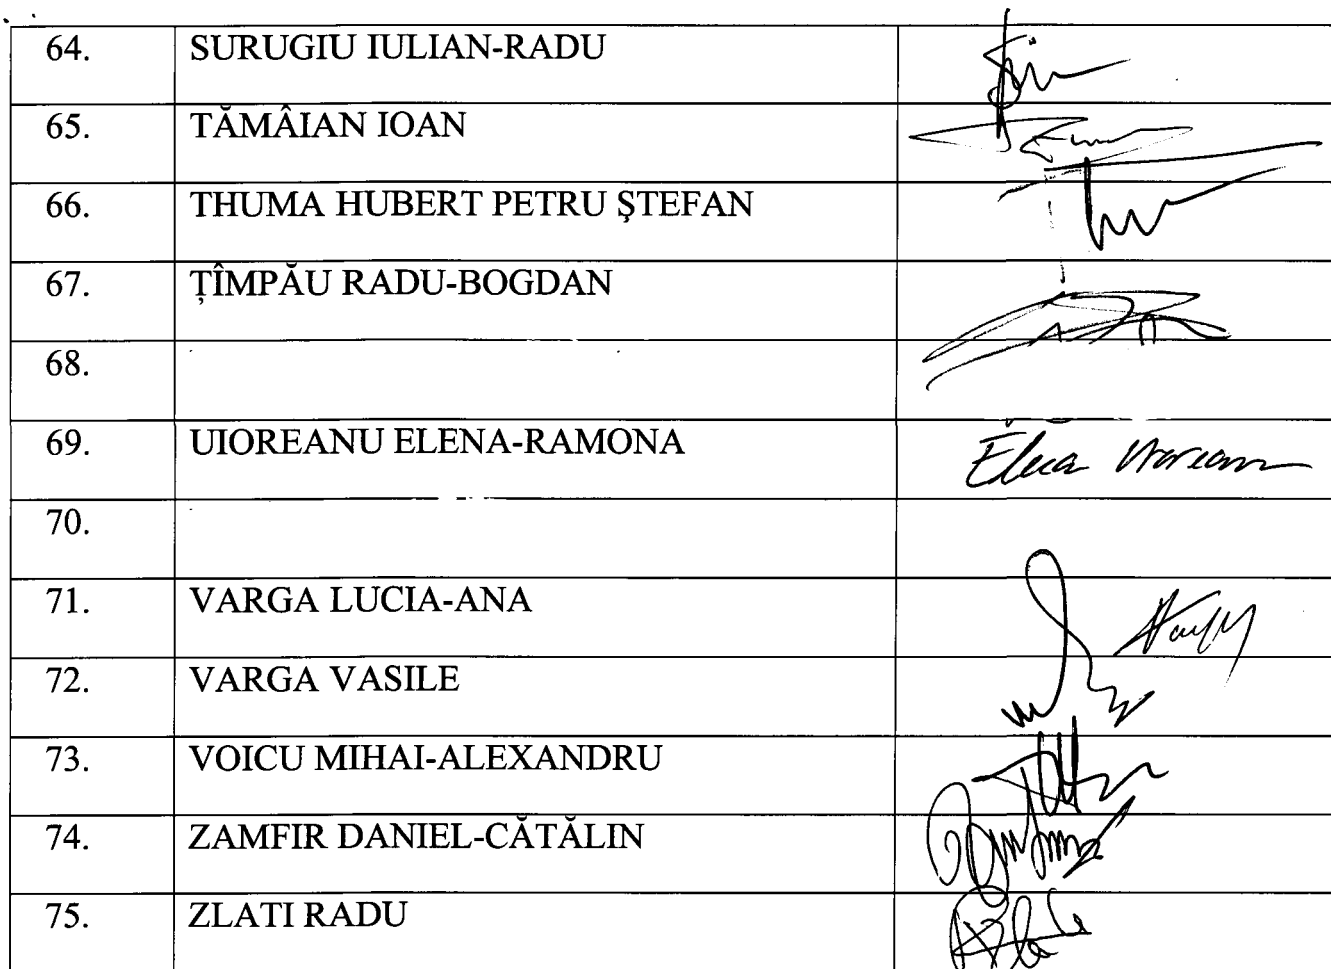 64. SURUGIU IULIAN-RADU
65. TĂMÂIAN IOAN
66. THUMA HUBERT PETRU ŞTEFAN
67. ŢÎMPĂU RADU-BOGDAN
68.
69. UIOREANU ELENA-RAMONA Elena Uioreanu
70.
71. VARGA LUCIA-ANA
72. VARGA VASILE
73. VOICU MIHAI-ALEXANDRU
74. ZAMFIR DANIEL-CĂTĂLIN
75. ZLATI RADU